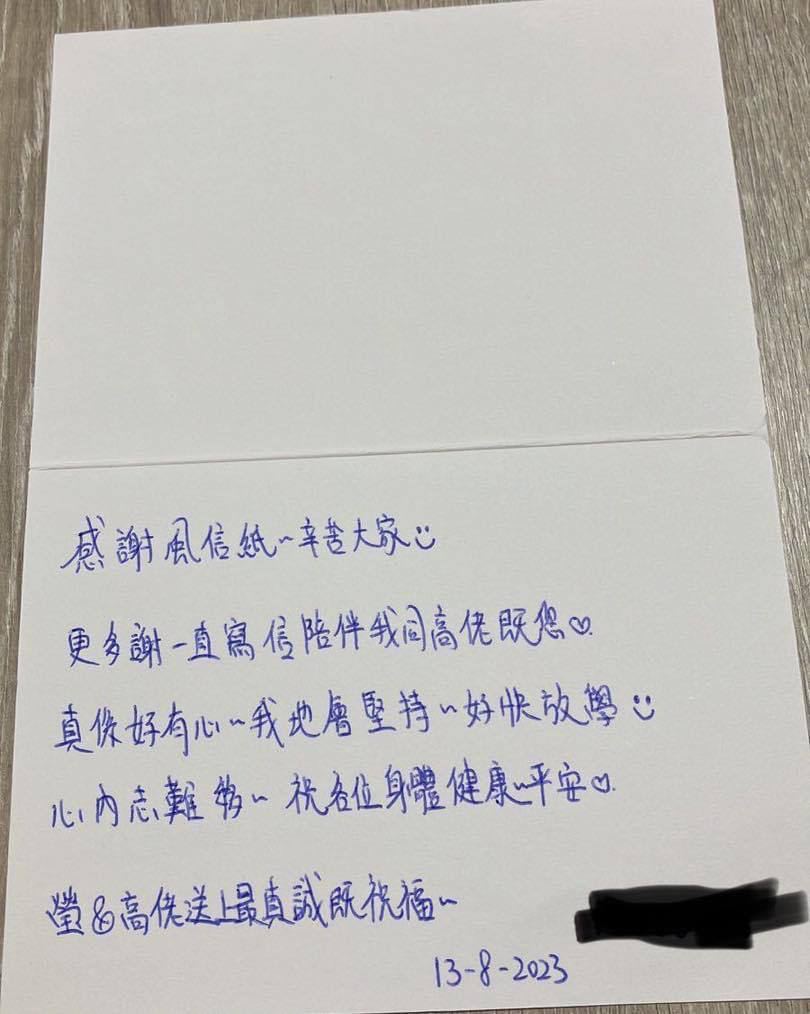 感謝風信紙~辛苦大家☺
更多謝一直寫信陪伴我同高佬既您♡.
真係好有心~我地會堅持~好快放學☺
心內志難移~祝各位身體健康~平安♡.
瑩&高佬送上最真誠既祝福~
13-8-2023